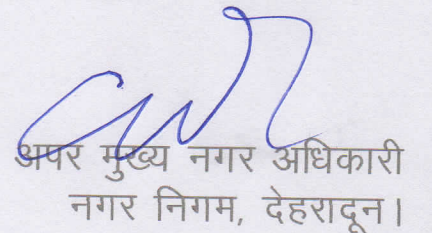 अपर मुख्य नगर अधिकारी
नगर निगम, देहरादून।